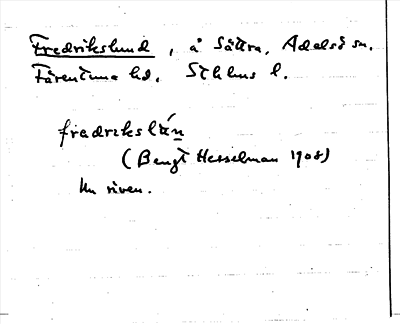 Fredrikslund, å Sättra, Adelsö sn.
Färentuna hd. Sthlms l.
fredrikslún
(Bengt Hesselman 1908)
Nu riven.